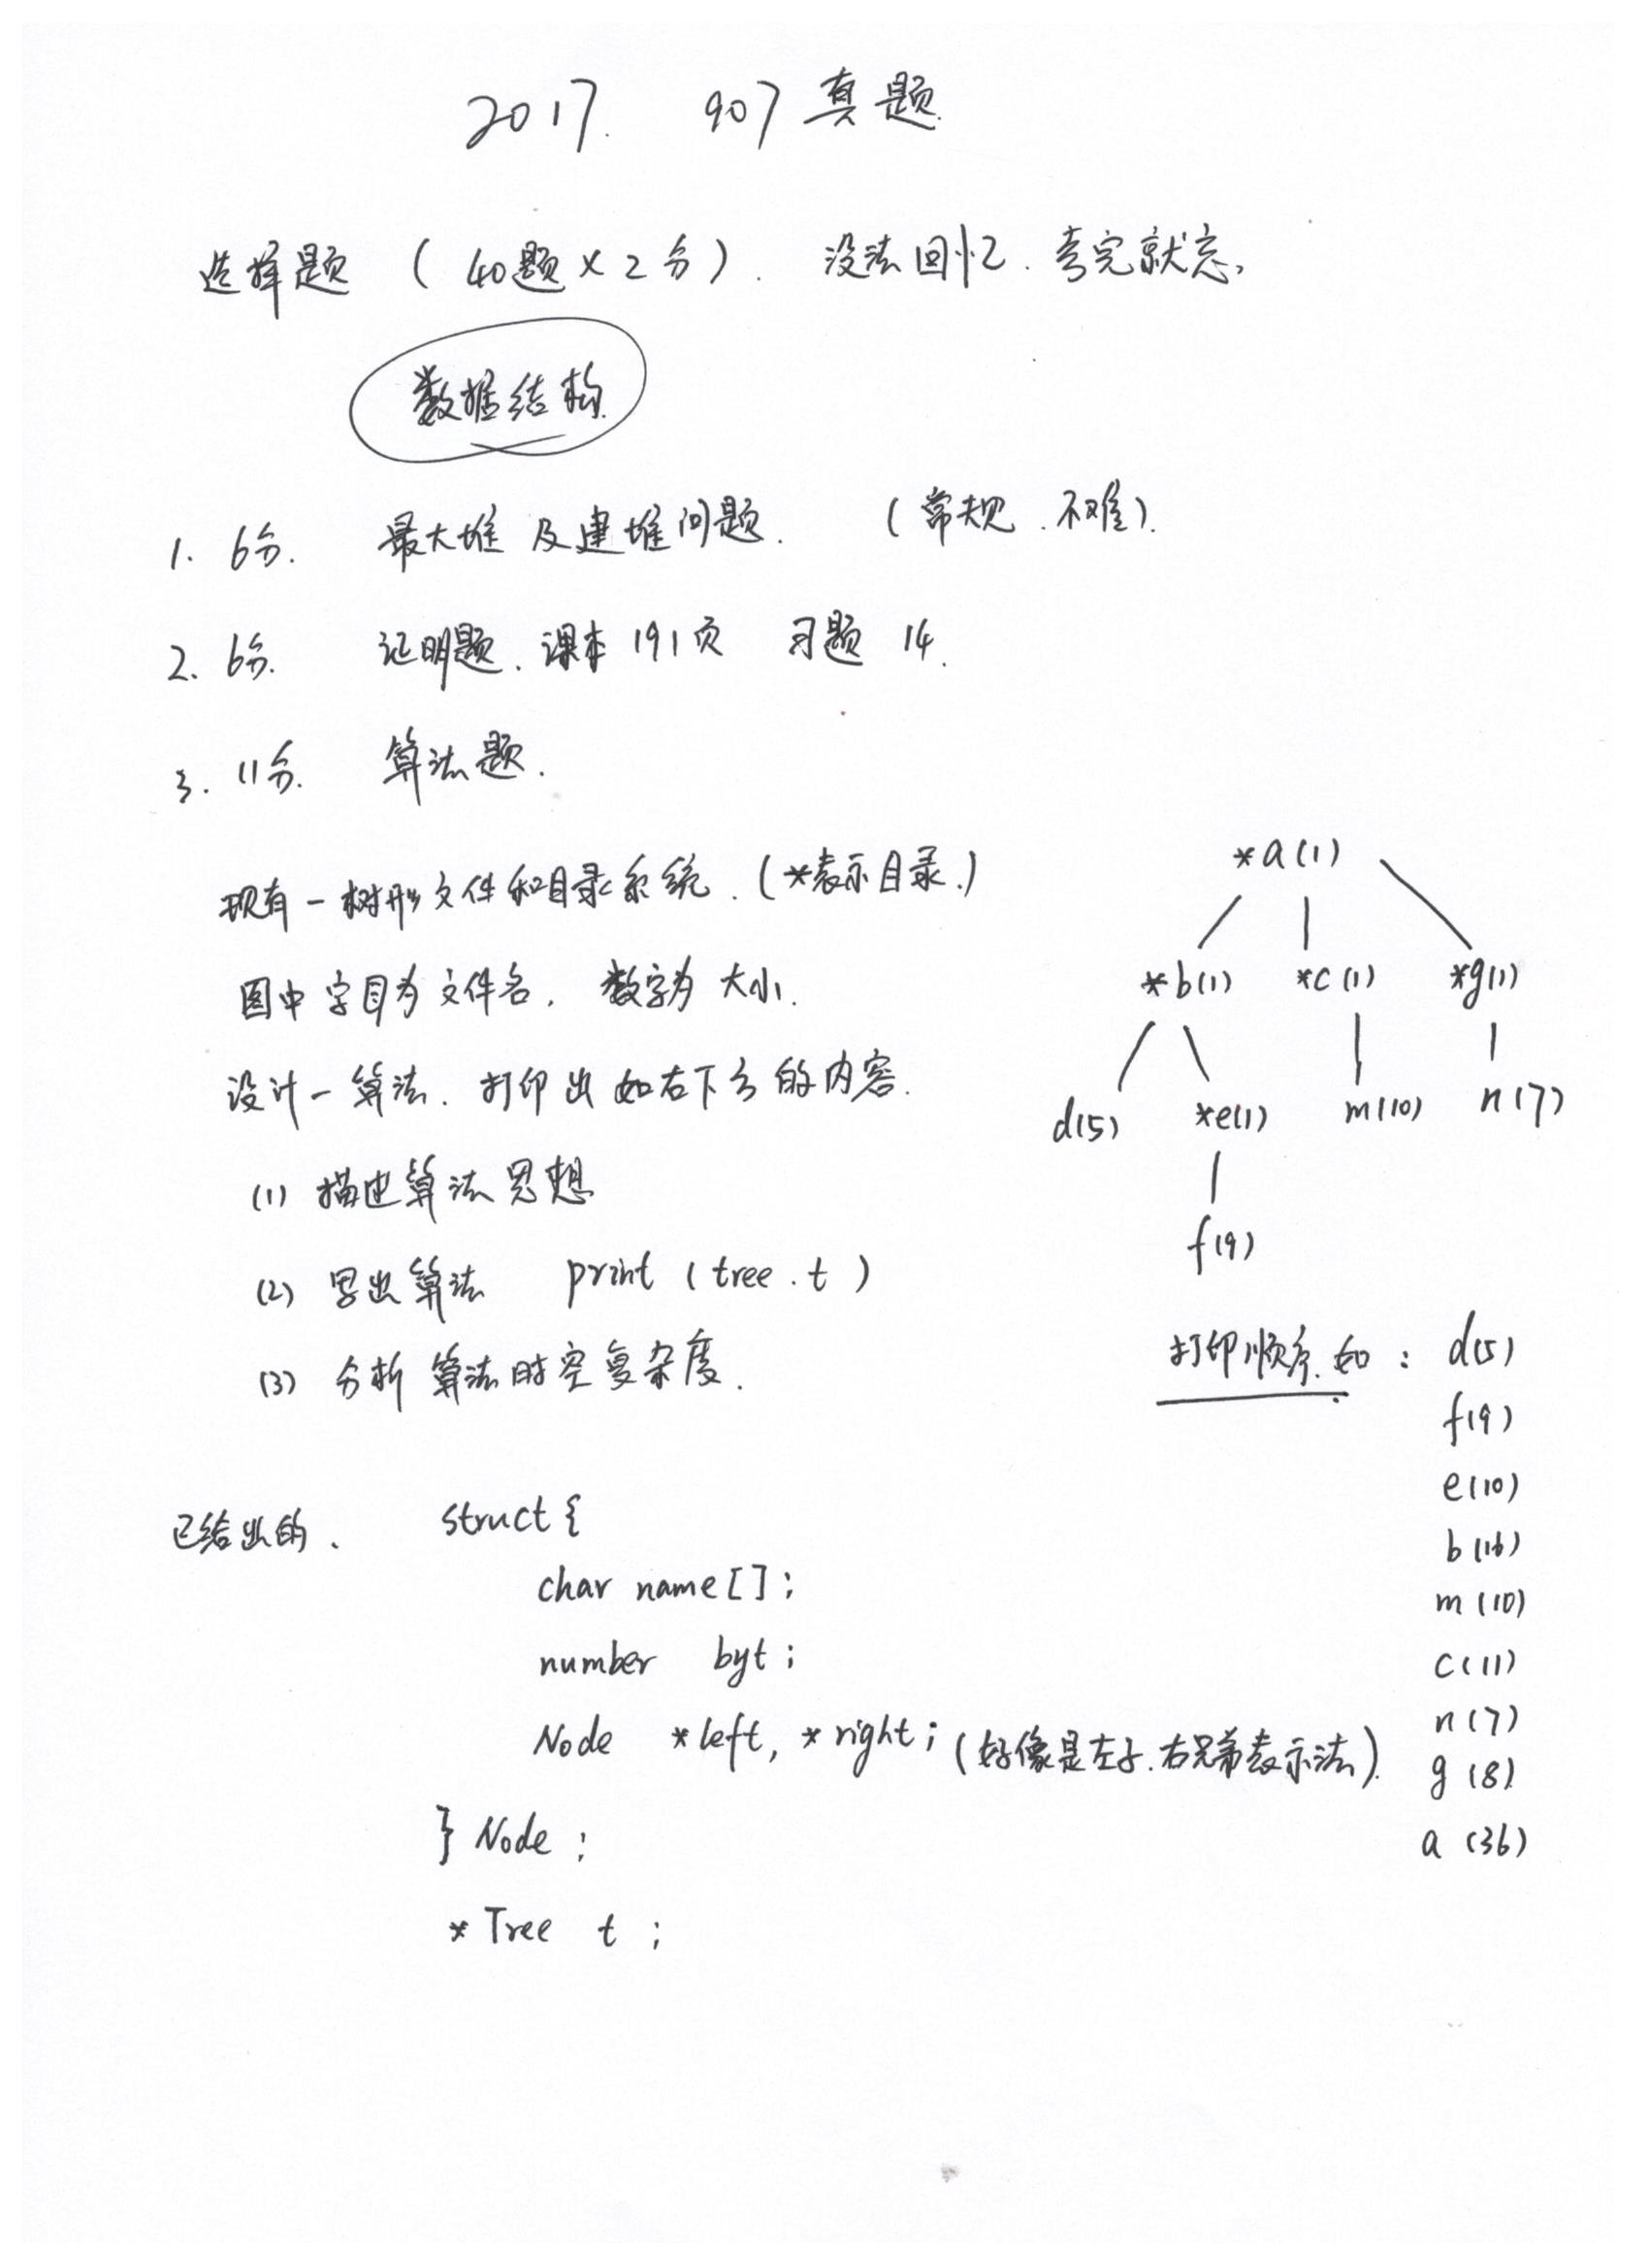 2017. 907真题.
选择题 ( 40题 × 2分 ). 没法回忆. 考完就忘,
数据结构
1. 6分. 最大堆及建堆问题. (常规.不难).
2. 6分. 证明题.课本191页 习题14.
3. 11分. 算法题.
现有一树形文件和目录系统.(*表示目录.)
图中字母为文件名. 数字为大小.
设计一算法.打印出如右下方的内容.
(1) 描述算法思想
(2) 写出算法 print (tree.t)
(3) 分析算法时空复杂度.
*a(1)
*b(1) *c(1) *g(1)
d(5) *e(1) m(10) n(7)
f(9)
打印顺序.如: d(5)
f(9)
e(10)
b(16)
m(10)
c(11)
n(7)
g(8)
a(36)
已给出的、 struct {
char name[];
number byt;
Node *left, *right; (好像是左子.右兄弟表示法).
} Node;
*Tree t;